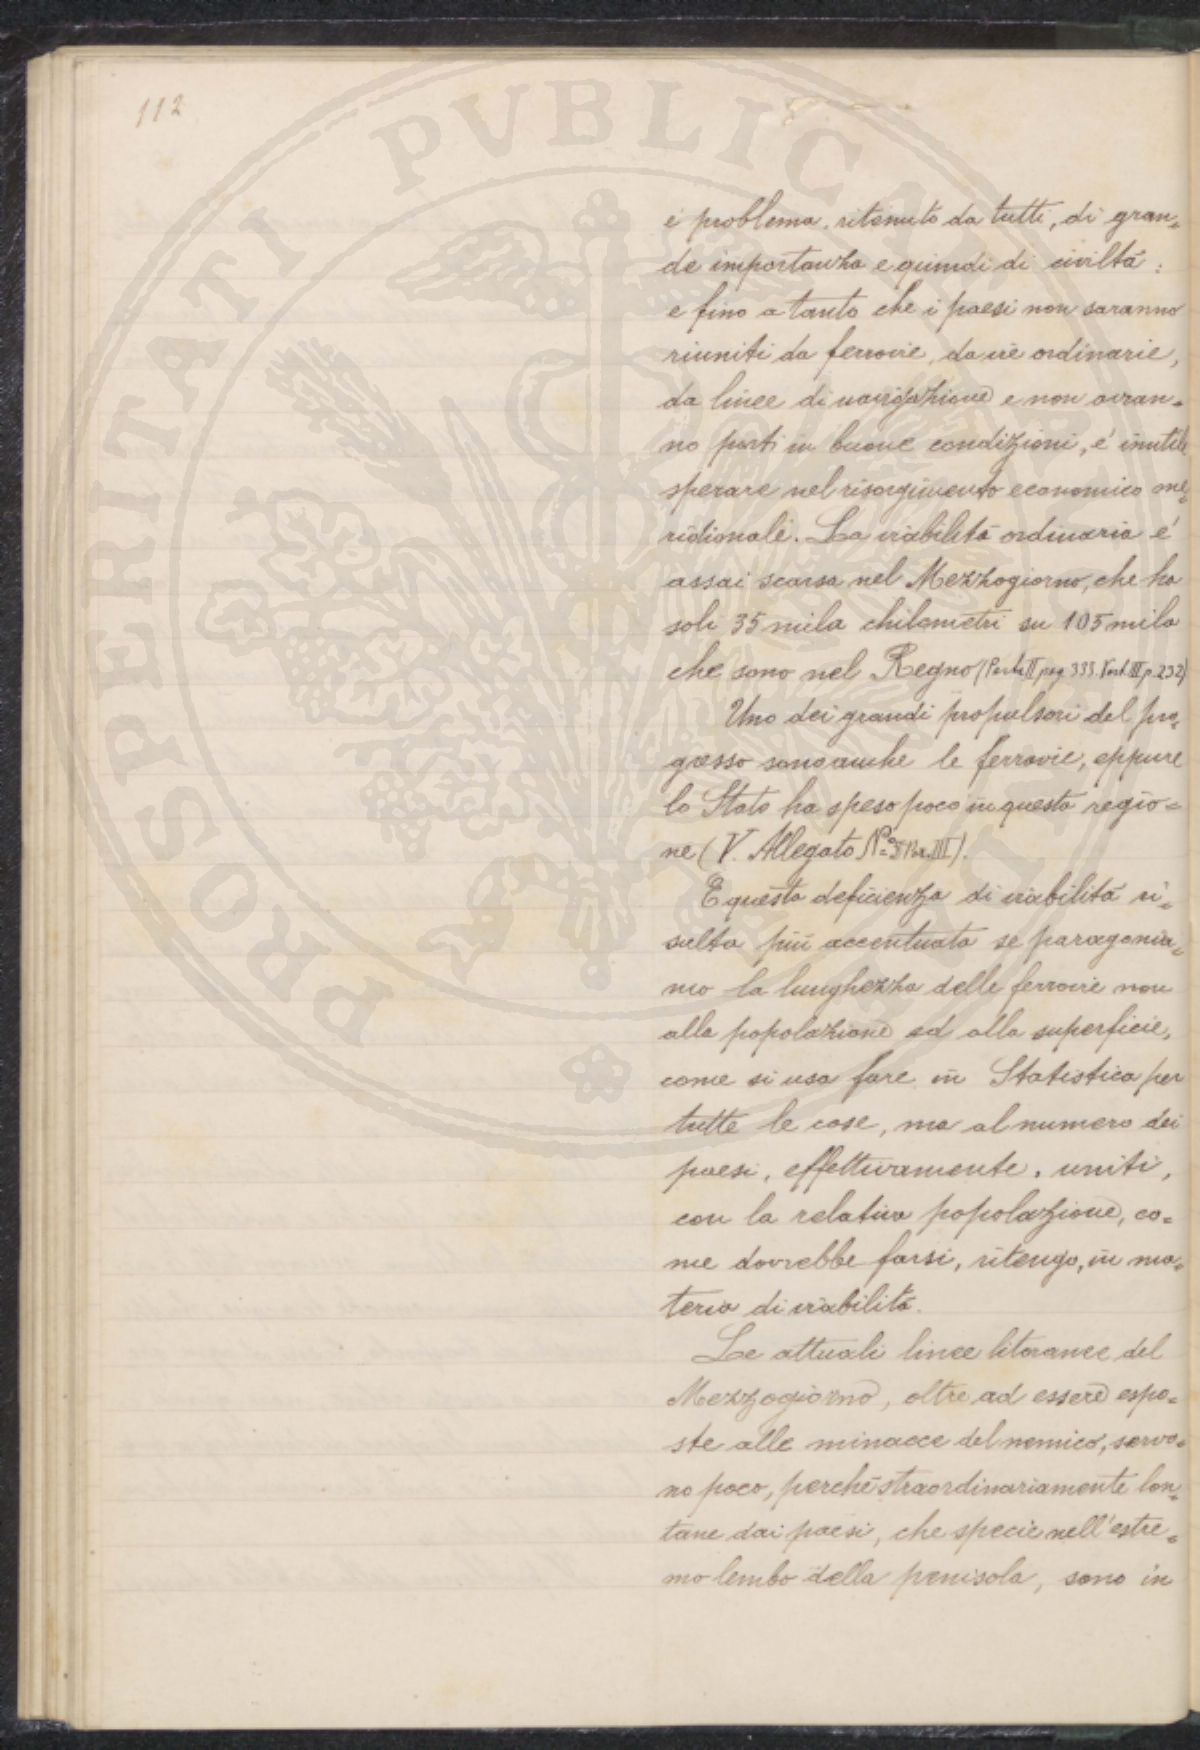 112
PROSPERITATI PUBLICAE
é problema, ritenuto da tutti, di gran=
de importanza e quindi di civiltá:
e fino a tanto che i paesi non saranno
riuniti da ferrovie, da vie ordinarie,
da linee di navigazione e non avran=
no porti in buone condizioni, é inutile
sperare nel risorgimento economico me=
ridionale. La viabilitá ordinaria é
assai scarsa nel Mezzogiorno, che ha
soli 35 mila chilometri su 105 mila
che sono nel Regno (Parte II pag. 333. Vol. III p. 232)
Uno dei grandi propulsori del pro=
gresso sono anche le ferrovie, eppure
lo Stato ha speso poco in questa regio=
ne (V. Allegato Nº Par. III).
E questa deficienza di viabilitá ri=
sulta piú accentuata se paragonia=
mo la lunghezza delle ferrovie non
alla popolazione ed alla superficie,
come si usa fare in Statistica per
tutte le cose, ma al numero dei
paesi, effettivamente, uniti,
con la relativa popolazione, co=
me dovrebbe farsi, ritengo, in ma=
teria di viabilitá.
Le attuali linee litoranee del
Mezzogiorno, oltre ad essere espo=
ste alle minacce del nemico, servo=
no poco, perché straordinariamente lon=
tane dai paesi, che specie nell'estre=
mo lembo della penisola, sono in